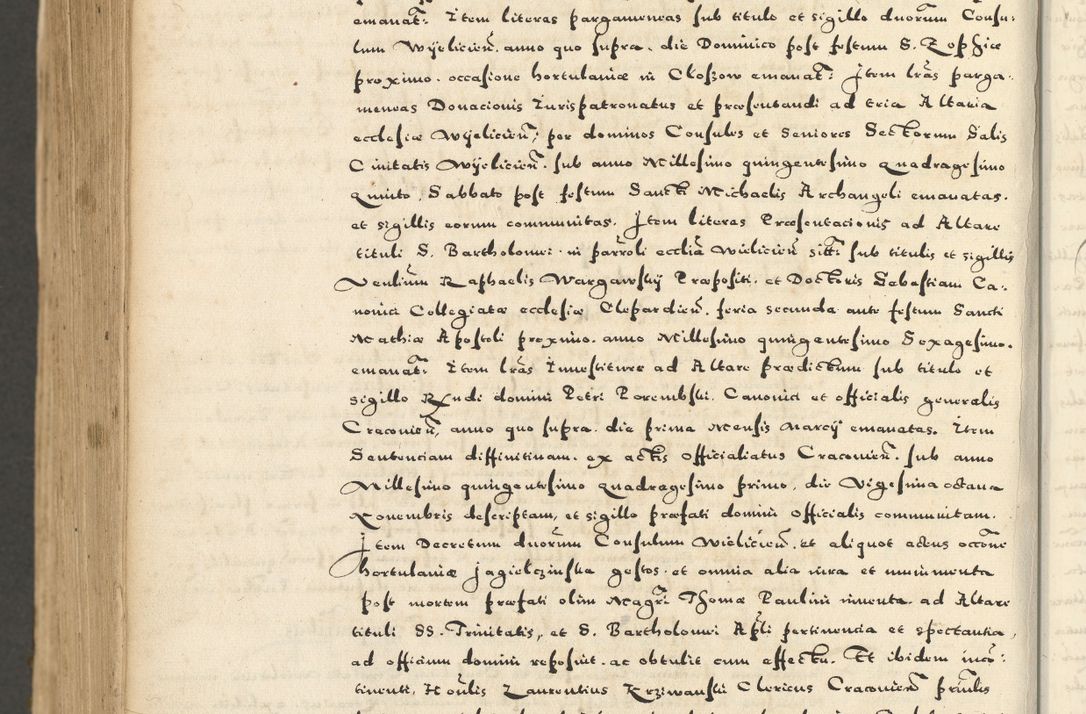 emanat: Item literas pargameneas sub titulo et sigillo dnorum Consu-
lum Wyelicien̄. anno quo supra. die Dominico post festum S. Zophiæ
proximo. occasione hortulaniæ in Closzow emanat: Item lr̄as parga-
meneas Donacionis Iurispatronatus et præsentandi ad tria Altaria
ecclesiæ Wyeliciēn: per dominos Consules et Seniores Sectorum Salis
Ciuitatis Wyeliciēn. sub anno Millesimo quingentesimo quadragesimo
quinto, Sabbato post festum Sancti Michaelis Archangeli emanatas.
et sigillis eorum communitas. Item literas Præsentacionis ad Altare
tituli S. Bartholomei. in parroli ecclīa Wieliciēn sitt: sub titulis et sigillis
Venlium Raphaelis Wargawsky Præpositi. et Doctoris Sebastiani Ca-
nonici Collegiatæ ecclesiæ Clepardiēn. feria secunda ante festum Sancti
Mathiæ Apostoli proximo. anno Millesimo quingentesimo Sexagesimo.
emanat: Item lr̄as Inuestituræ ad Altare prædictum sub titulo et
sigillo Rndi domini Petri Porembski. Canonici et officialis generalis
Cracouiēn, anno quo supra. die prima Mensis Marcij emanatas. Item
Sentenciam diffinitiuam. ex actis Officialiatus Cracouiēn. sub anno
Millesimo quingentesimo quadragesimo primo, die Vigesima octaua
Nouembris descriptam, et sigillo præfati domini Officialis communitam.
Item Decretum dnorum Consulum Wieliciēn. et aliquot actus occōne
hortulaniæ Jagielczinska gestos. et omnia alia iura et munimenta
post mortem præfati olim Magr̄i Thomæ Paulini inuenta. ad Altare
tituli SS. Trinitatis, et S. Bartholomei Apl̄i pertinencia et spectantia,
ad officium domini reposuit. ac obtulit cum effectu. Et ibidem incō-
tinenti, Hon̄lis Laurentius Krziwanski Clericus Cracouiēn prn̄lis